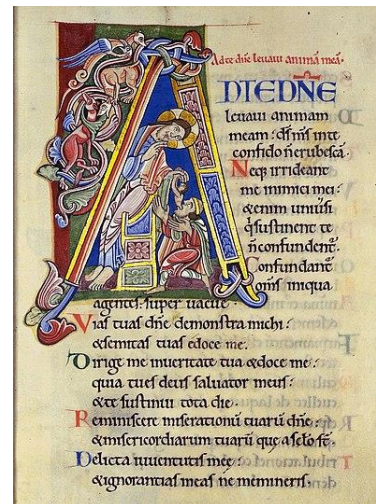 Ad te dñe leuaui animã meã.
ADTEDÑE
leuaui animam
meam : ds̄ ms̄ inte
confido ñ erubescã.
Neq; irrideant
me inimici mei :
&enim uniũsi
q̃ sustinent te
ñ confundent̃.
Confundant̃
om̃s iniqua
agentes : super uacue .
Vias tuas dñe demonstra michi :
&semitas tuas edoce me .
Dirige me inueritate tua &doce me :
quia tu es deus saluator meus :
&te sustinui tota die .
Reminiscere miserationũ tuarũ dñe :
&misericordiarum tuarũ que a
Delicta iuuentutis mee :
&ignorantias meas ne memineris .